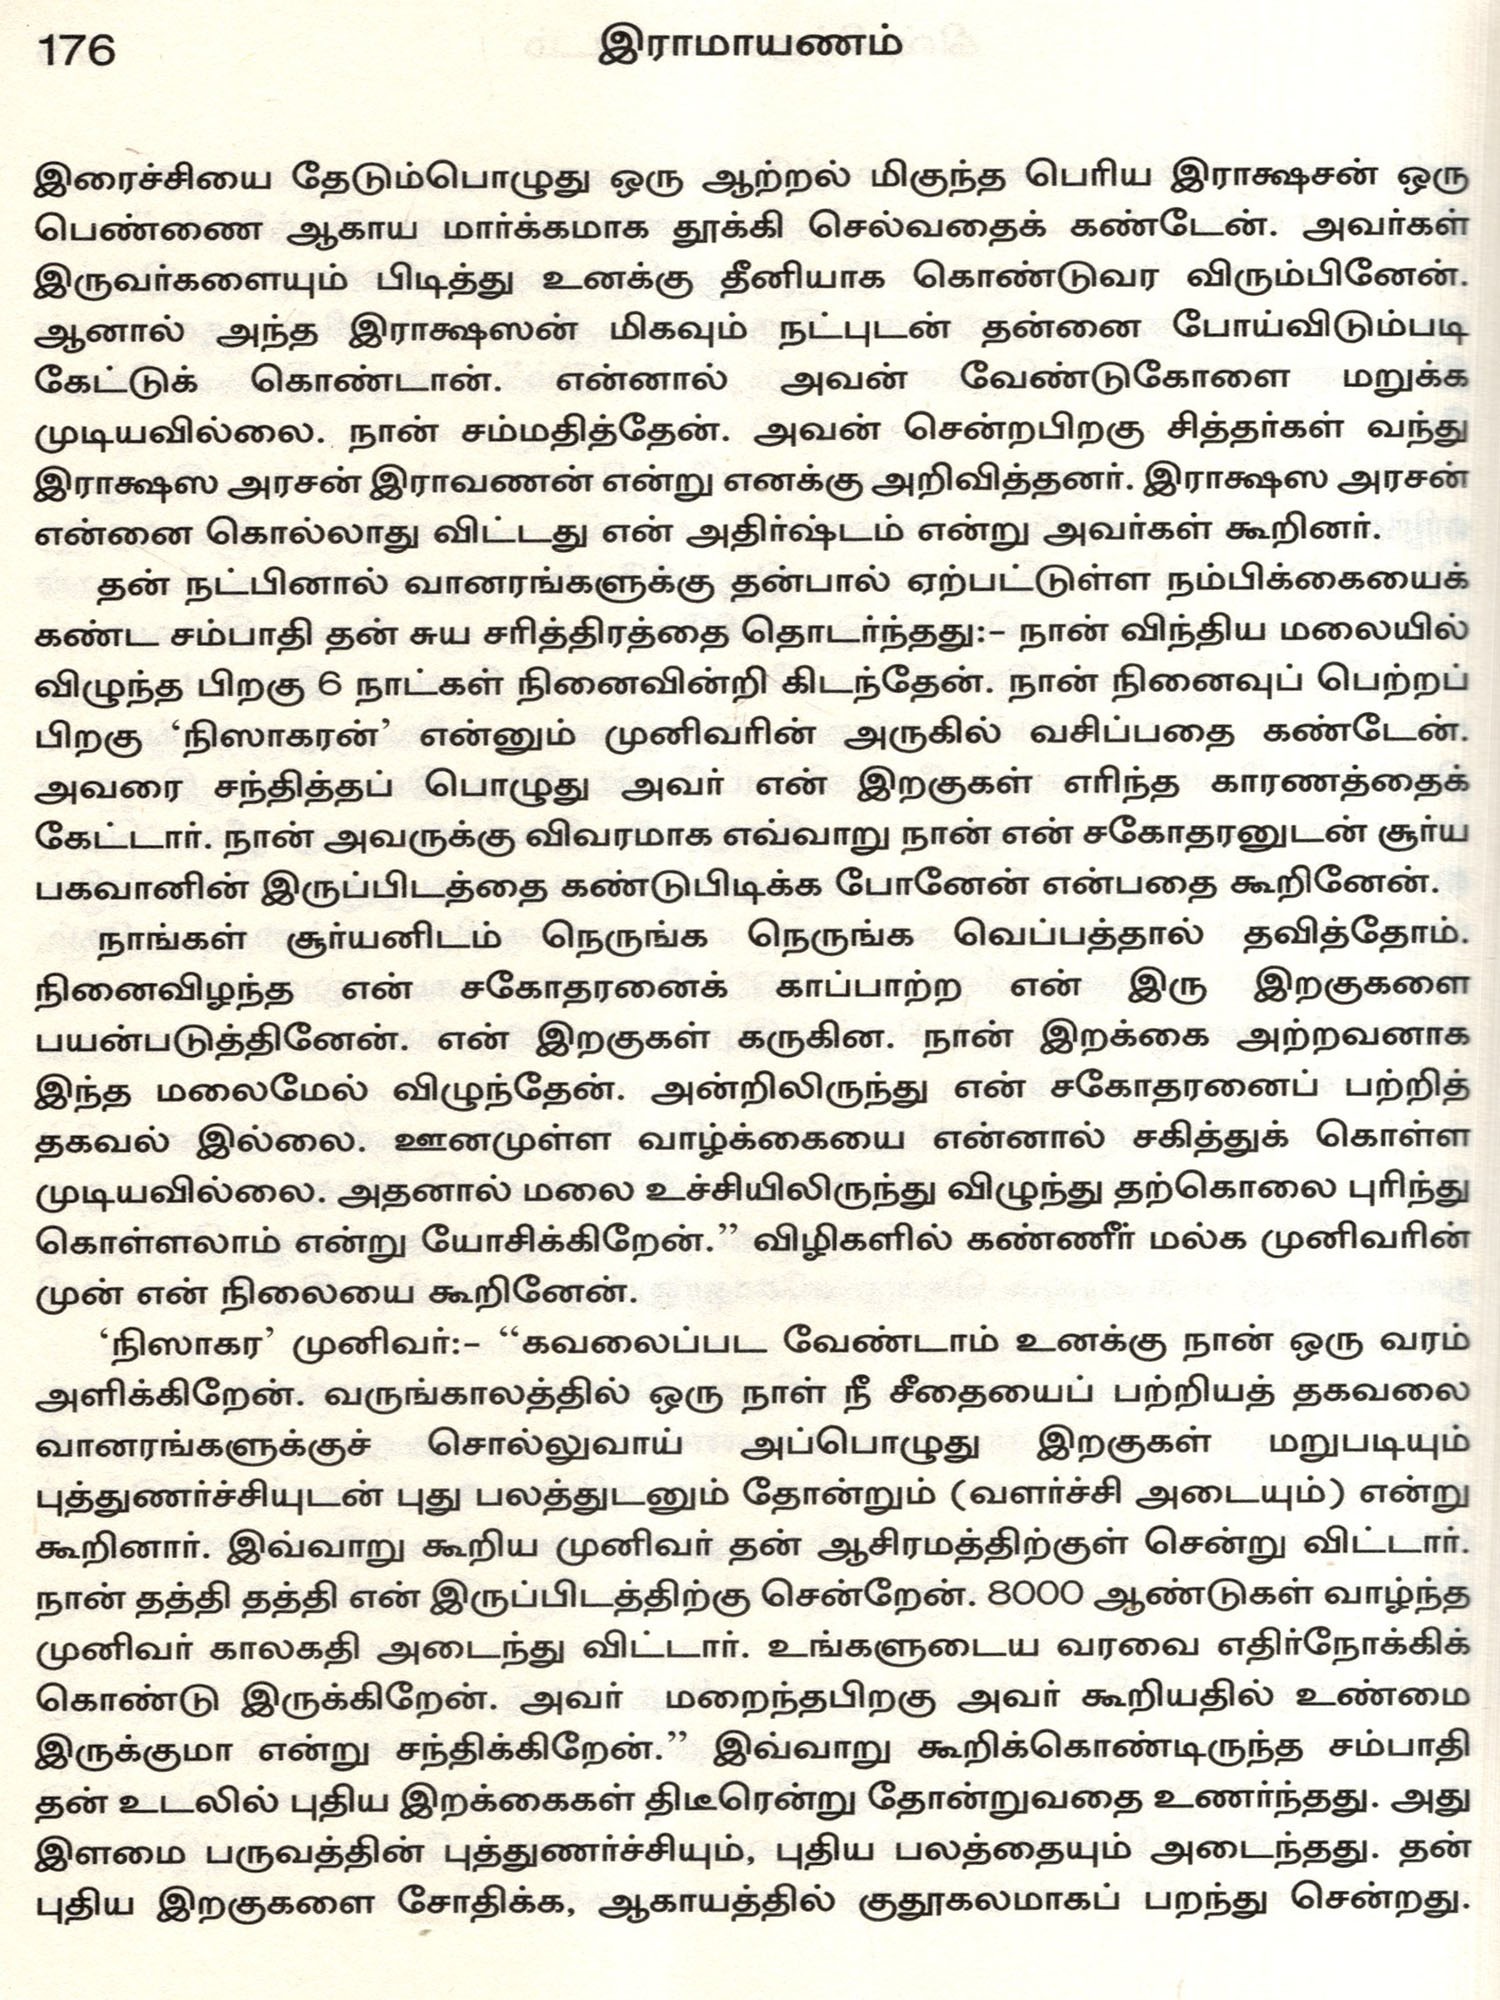 176
இராமாயணம்
இரைச்சியை தேடும்பொழுது ஒரு ஆற்றல் மிகுந்த பெரிய இராக்ஷசன் ஒரு
பெண்ணை ஆகாய மார்க்கமாக தூக்கி செல்வதைக் கண்டேன். அவர்கள்
இருவர்களையும் பிடித்து உனக்கு தீனியாக கொண்டுவர விரும்பினேன்.
ஆனால் அந்த இராக்ஷஸன் மிகவும் நட்புடன் தன்னை போய்விடும்படி
கேட்டுக் கொண்டான். என்னால் அவன் வேண்டுகோளை மறுக்க
முடியவில்லை. நான் சம்மதித்தேன். அவன் சென்றபிறகு சித்தர்கள் வந்து
இராக்ஷஸ அரசன் இராவணன் என்று எனக்கு அறிவித்தனர். இராக்ஷஸ அரசன்
என்னை கொல்லாது விட்டது என் அதிர்ஷ்டம் என்று அவர்கள் கூறினர்.
தன் நட்பினால் வானரங்களுக்கு தன்பால் ஏற்பட்டுள்ள நம்பிக்கையைக்
கண்ட சம்பாதி தன் சுய சரித்திரத்தை தொடர்ந்தது:– நான் விந்திய மலையில்
விழுந்த பிறகு 6 நாட்கள் நினைவின்றி கிடந்தேன். நான் நினைவுப் பெற்றப்
பிறகு ‘நிஸாகரன்’ என்னும் முனிவரின் அருகில் வசிப்பதை கண்டேன்.
அவரை சந்தித்தப் பொழுது அவர் என் இறகுகள் எரிந்த காரணத்தைக்
கேட்டார். நான் அவருக்கு விவரமாக எவ்வாறு நான் என் சகோதரனுடன் சூர்ய
பகவானின் இருப்பிடத்தை கண்டுபிடிக்க போனேன் என்பதை கூறினேன்.
நாங்கள் சூர்யனிடம் நெருங்க நெருங்க வெப்பத்தால் தவித்தோம்.
நினைவிழந்த என் சகோதரனைக் காப்பாற்ற என் இரு இறகுகளை
பயன்படுத்தினேன். என் இறகுகள் கருகின. நான் இறக்கை அற்றவனாக
இந்த மலைமேல் விழுந்தேன். அன்றிலிருந்து என் சகோதரனைப் பற்றித்
தகவல் இல்லை. ஊனமுள்ள வாழ்க்கையை என்னால் சகித்துக் கொள்ள
முடியவில்லை. அதனால் மலை உச்சியிலிருந்து விழுந்து தற்கொலை புரிந்து
கொள்ளலாம் என்று யோசிக்கிறேன்.” விழிகளில் கண்ணீர் மல்க முனிவரின்
முன் என் நிலையை கூறினேன்.
‘நிஸாகர’ முனிவர்:– “கவலைப்பட வேண்டாம் உனக்கு நான் ஒரு வரம்
அளிக்கிறேன். வருங்காலத்தில் ஒரு நாள் நீ சீதையைப் பற்றியத் தகவலை
வானரங்களுக்குச் சொல்லுவாய் அப்பொழுது இறகுகள் மறுபடியும்
புத்துணர்ச்சியுடன் புது பலத்துடனும் தோன்றும் (வளர்ச்சி அடையும்) என்று
கூறினார். இவ்வாறு கூறிய முனிவர் தன் ஆசிரமத்திற்குள் சென்று விட்டார்.
நான் தத்தி தத்தி என் இருப்பிடத்திற்கு சென்றேன். 8000 ஆண்டுகள் வாழ்ந்த
முனிவர் காலகதி அடைந்து விட்டார். உங்களுடைய வரவை எதிர்நோக்கிக்
கொண்டு இருக்கிறேன். அவர் மறைந்தபிறகு அவர் கூறியதில் உண்மை
இருக்குமா என்று சந்திக்கிறேன்.” இவ்வாறு கூறிக்கொண்டிருந்த சம்பாதி
தன் உடலில் புதிய இறக்கைகள் திடீரென்று தோன்றுவதை உணர்ந்தது. அது
இளமை பருவத்தின் புத்துணர்ச்சியும், புதிய பலத்தையும் அடைந்தது. தன்
புதிய இறகுகளை சோதிக்க, ஆகாயத்தில் குதூகலமாகப் பறந்து சென்றது.